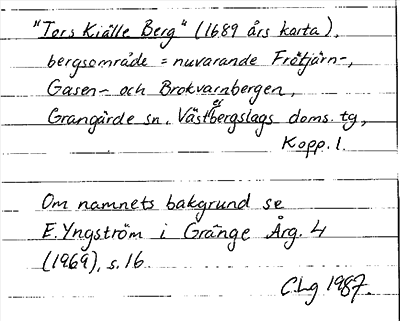 "Tors Kiälle Berg" (1689 års karta),
bergsområde = nuvarande Frötjärn-,
Gasen- och Brokvarnbergen,
Grangärde sn. Västerbergslags doms. tg,
Kopp. l.
Om namnets bakgrund se
E. Yngström i Gränge Årg. 4
(1969), s. 16
C. Lg 1987.